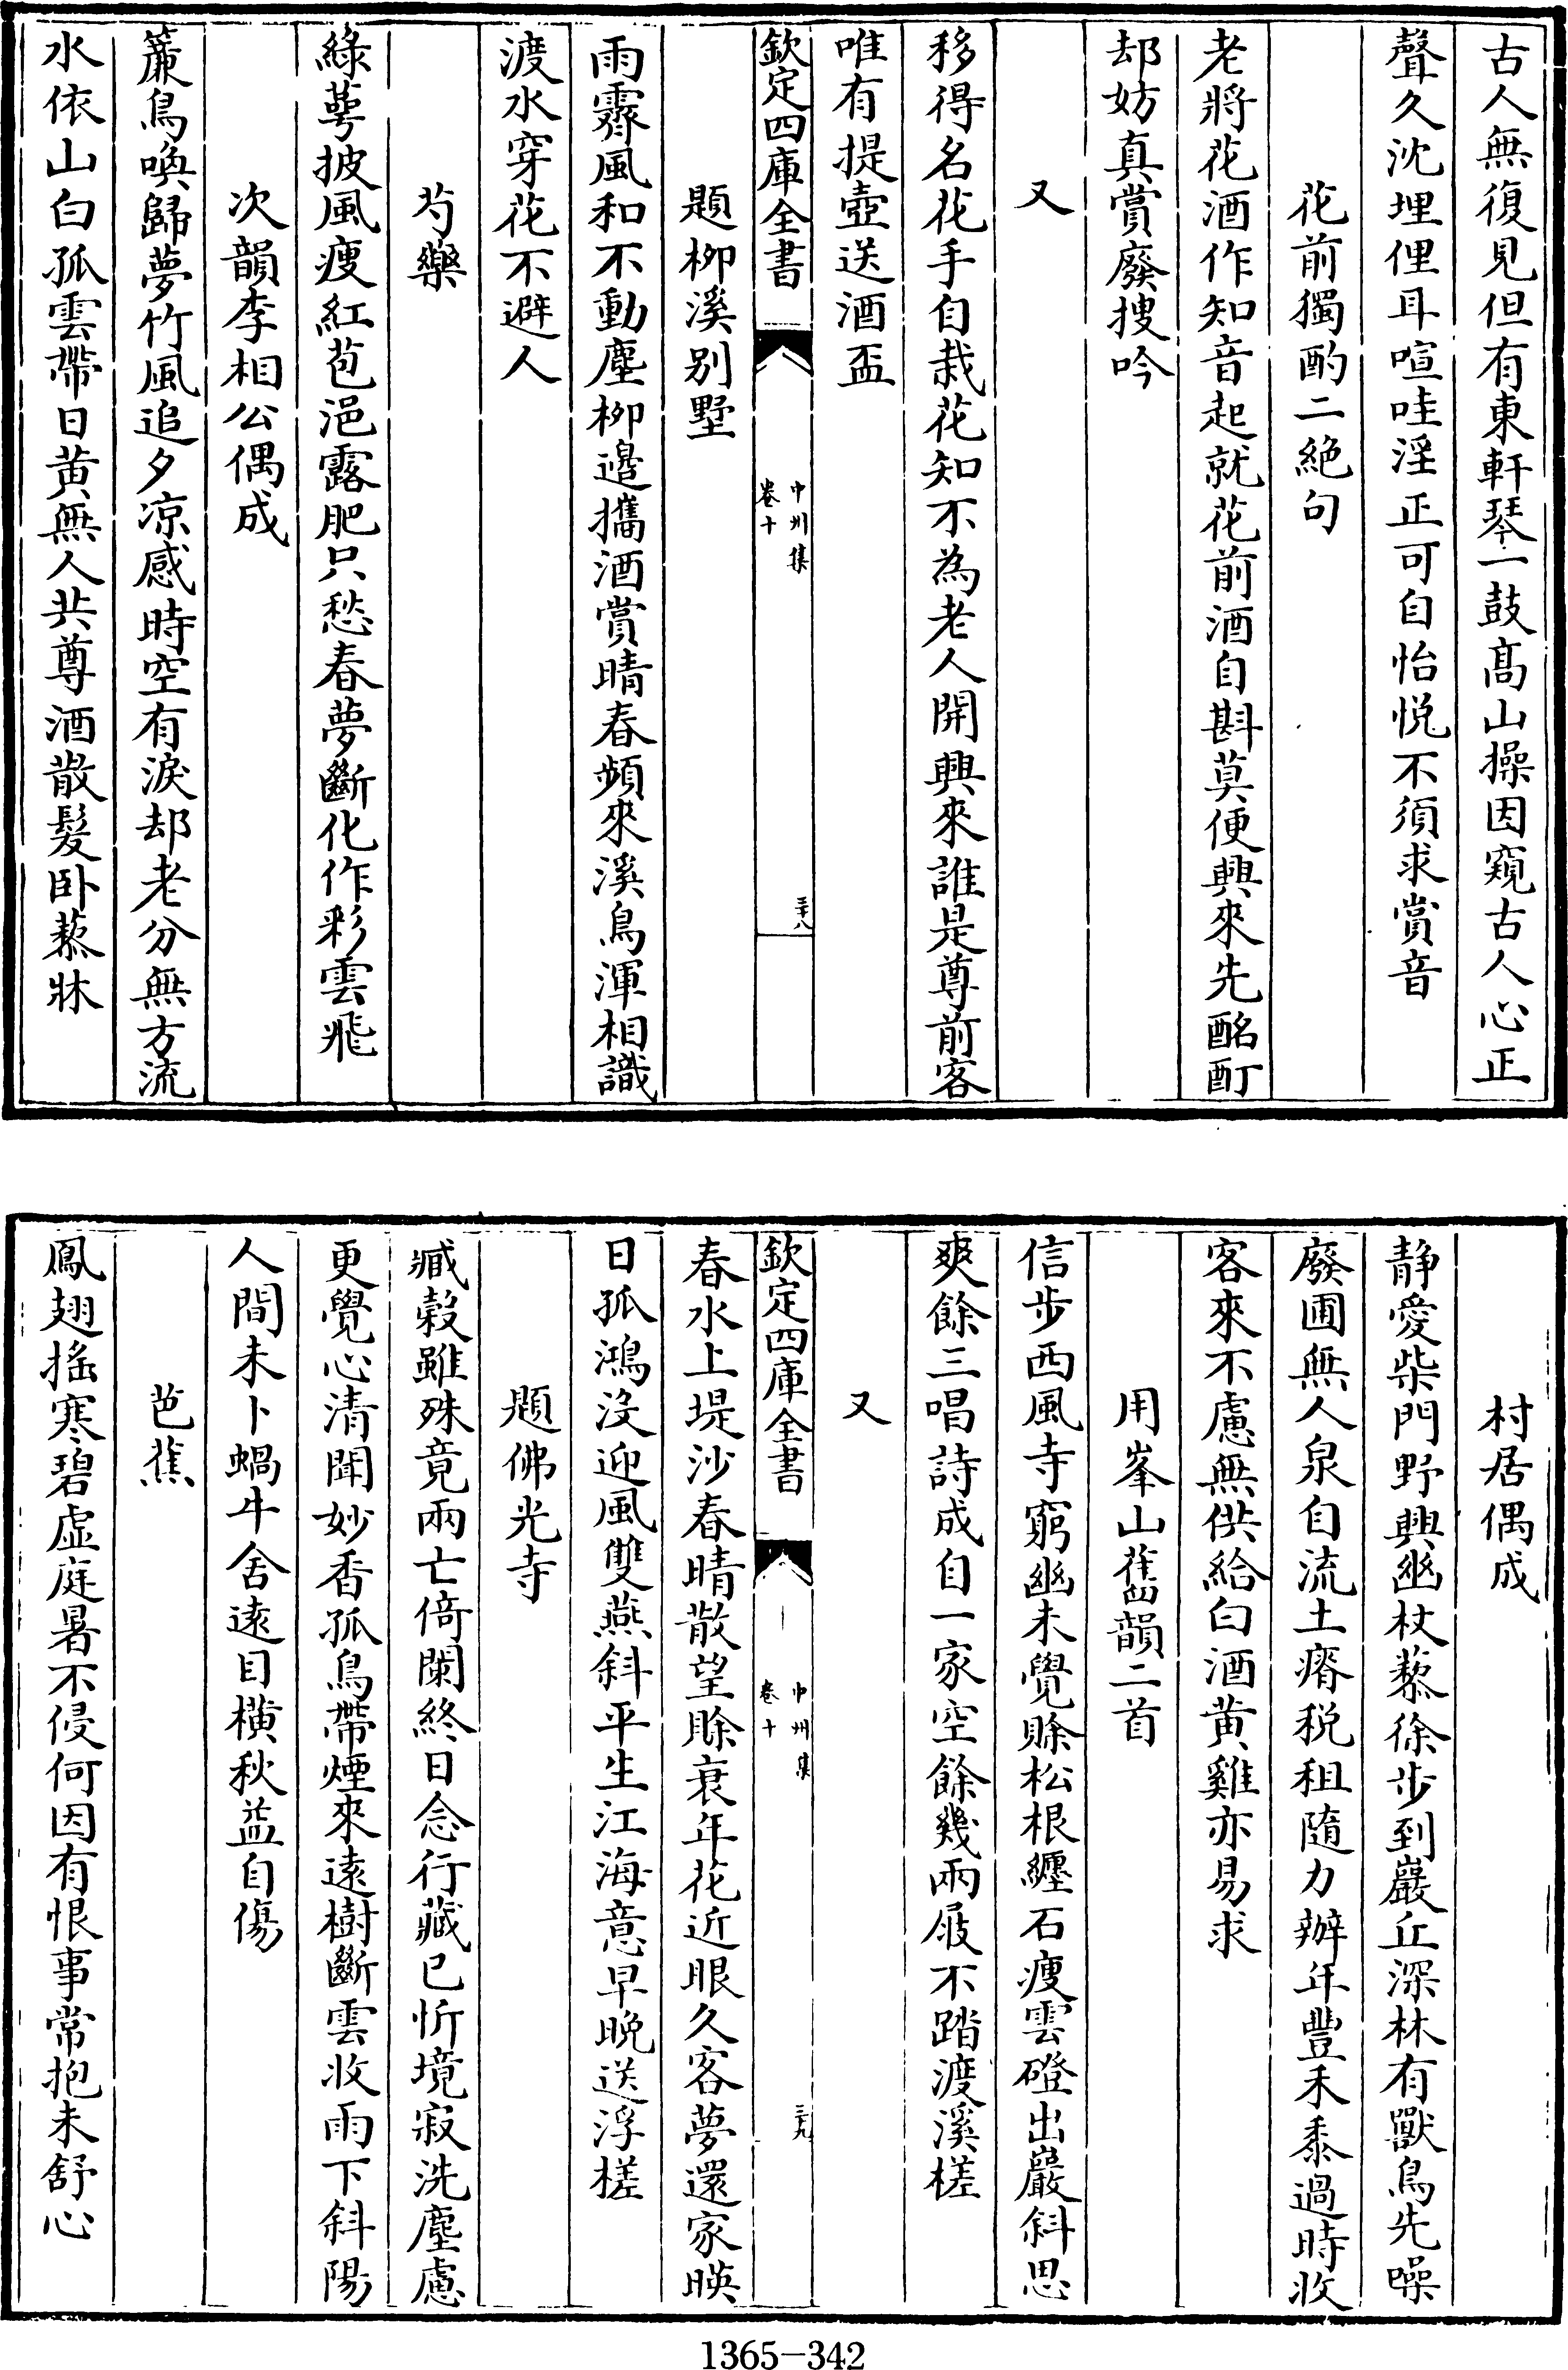 古人無復見但有東軒琴一鼓髙山操因窺古人心正
聲久沈埋俚耳喧哇淫正可自怡悦不須求賞音
花前獨酌二絶句
老將花酒作知音起就花前酒自斟莫便興來先酩酊
却妨真賞廢搜吟
又
移得名花手自栽花知不為老人開興來誰是尊前客
唯有提壺送酒盃
欽定四庫全書
中州集
卷十
三十八
題柳溪别墅
雨霽風和不動塵柳邉攜酒賞晴春頻來溪鳥渾相識
渡水穿花不避人
芍藥
綠萼披風瘦紅苞浥露肥只愁春夢斷化作彩雲飛
次韻李相公偶成
簾鳥喚歸夢竹風追夕凉感時空有淚却老分無方流
水依山白孤雲帶日黄無人共尊酒散髮卧藜牀
村居偶成
静愛柴門野興幽杖藜徐步到巖丘深林有獸鳥先噪
廢圃無人泉自流土瘠税租隨力辦年豐禾黍過時收
客來不慮無供給白酒黄雞亦易求
用峯山舊韻二首
信步西風寺窮幽未覺賒松根纏石瘦雲磴出巖斜思
爽餘三唱詩成自一家空餘幾兩屐不踏渡溪槎
又
欽定四庫全書
中州集
卷十
三十九
春水上堤沙春晴散望賒衰年花近眼久客夢還家暎
日孤鴻沒迎風雙燕斜平生江海意早晚送浮槎
題佛光寺
臧榖雖殊竟兩亡倚闌終日念行藏已忻境寂洗塵慮
更覺心清聞妙香孤鳥帶煙來遠樹斷雲收雨下斜陽
人間未卜蝸牛舍遠目橫秋益自傷
芭蕉
鳳翅摇寒碧虚庭暑不侵何因有恨事常抱未舒心
1365-342